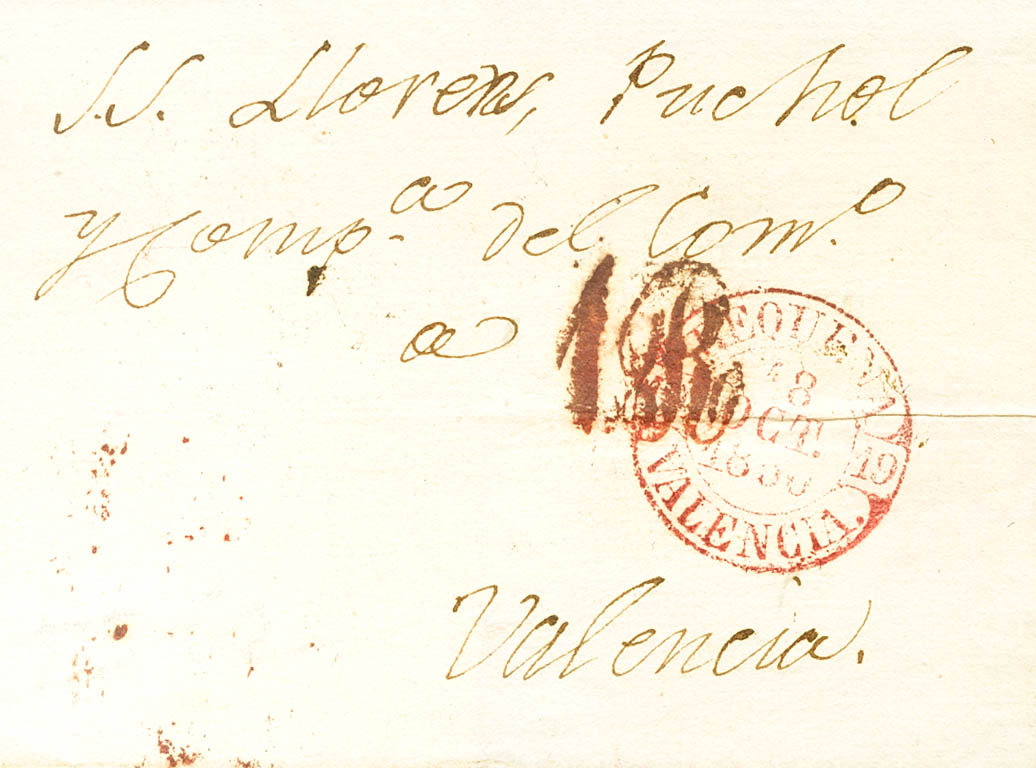 S.S. Llorens, Puchol
y Comp.ª del Com.º
a
REQUENA
18
OCT.
1850
19
VALENCIA.
Valencia.